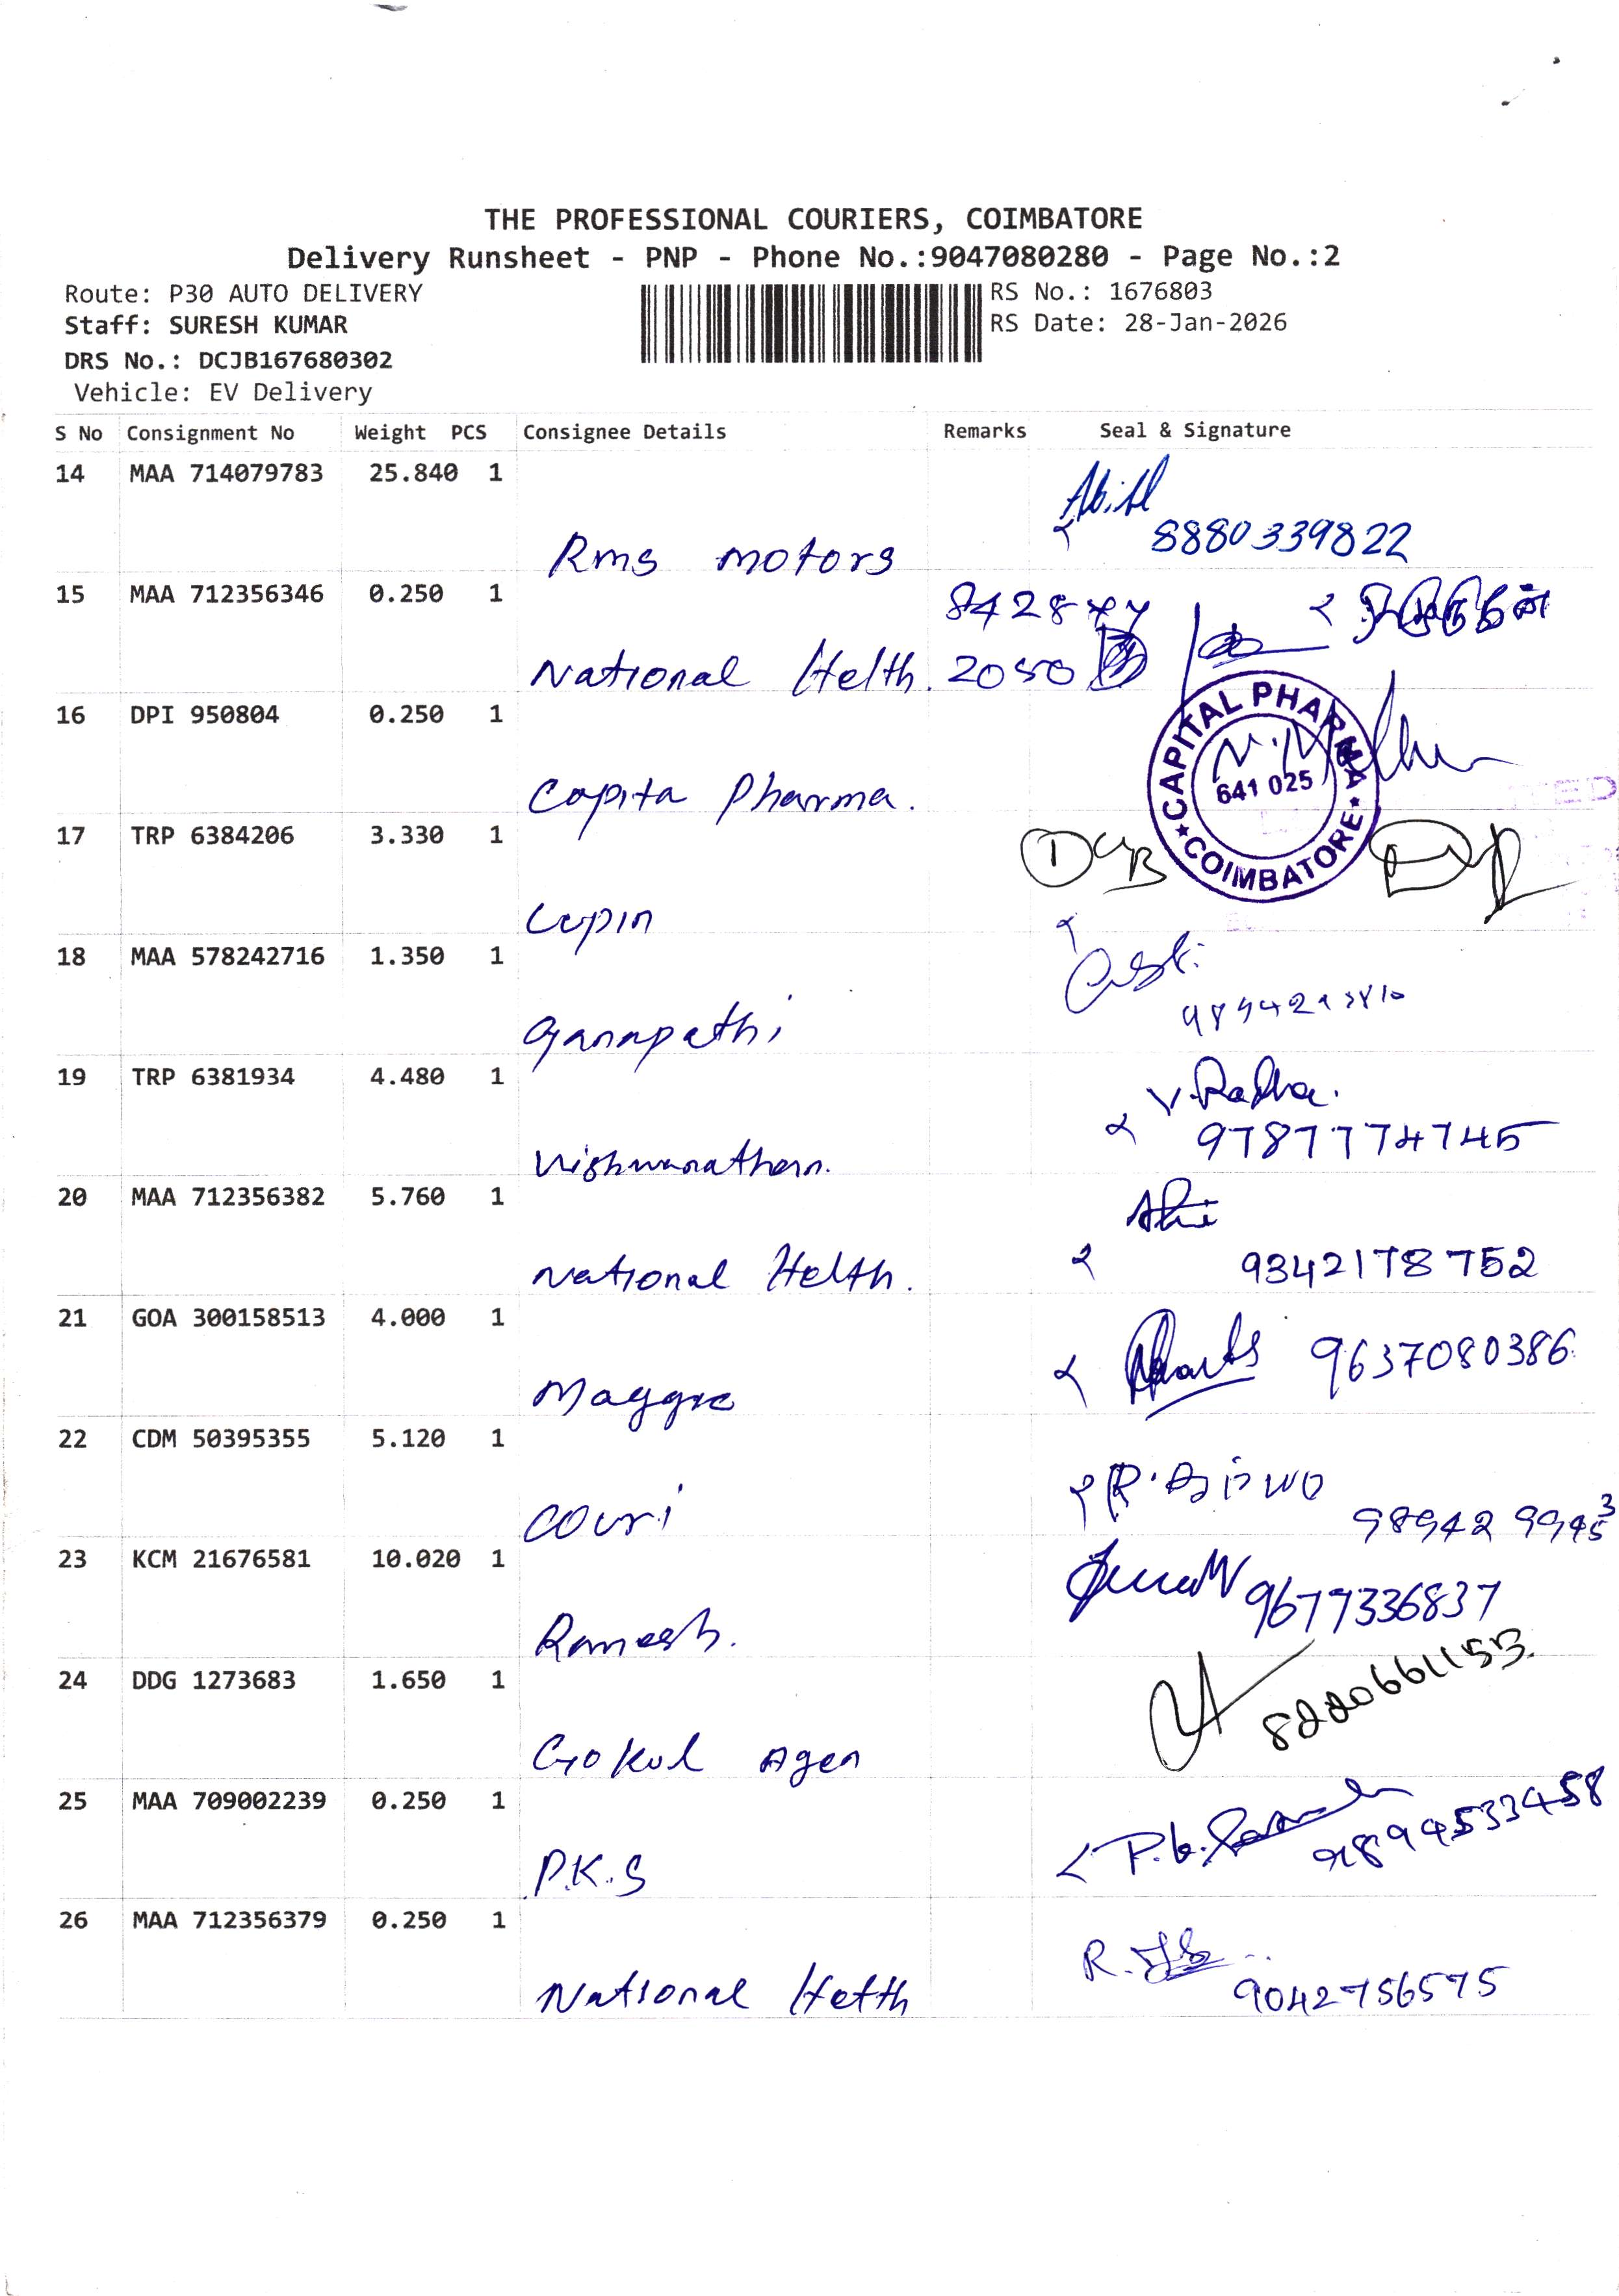 THE PROFESSIONAL COURIERS, COIMBATORE
Delivery Runsheet - PNP - Phone No.:9047080280 - Page No.:2
Route: P30 AUTO DELIVERY
RS No.: 1676803
Staff: SURESH KUMAR
RS Date: 28-Jan-2026
DRS No.: DCJB167680302
Vehicle: EV Delivery
S No Consignment No Weight PCS Consignee Details Remarks Seal & Signature
14 MAA 714079783 25.840 1
8880339822
Rms motors
15 MAA 712356346 0.250 1
National Helth. 2050
16 DPI 950804 0.250 1
CAPITAL PHARMA
641 025
COIMBATORE
Copita Pharma.
17 TRP 6384206 3.330 1
Lupin
18 MAA 578242716 1.350 1
Ganapathi
19 TRP 6381934 4.480 1
V. Radha.
9787774745
Vishwanathan.
20 MAA 712356382 5.760 1
National Helth.
9342178752
21 GOA 300158513 4.000 1
9637080386
Maggie
22 CDM 50395355 5.120 1
Couri
23 KCM 21676581 10.020 1
9677336837
Ramesh.
24 DDG 1273683 1.650 1
8220661153.
Gokul Agen
25 MAA 709002239 0.250 1
9894533458
P.K.S
26 MAA 712356379 0.250 1
9042756575
National Helth